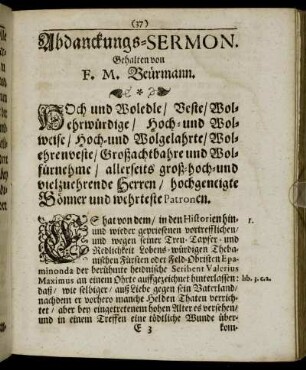 (37)
Abdanckungs-SERMON.
Gehalten von
F. M. Beürmann.
HOch und Woledle/ Veste/ Wol-
ehrwürdige/ Hoch- und Wol-
weise/ Hoch-und Wolgelahrte/ Wol-
ehrenveste/ Großachtbahre und Wol-
fürnehme/ allerseits groß-hoch-und
vielzuehrende Herren/ hochgeneigte
Gönner und wehrteste Patronen.
ES hat von dem/ in den Historien hin- 1.
und wieder gepriesenen vortrefflichen/
und wegen seiner Treu- Tapfer- und
Redlichkeit Lobens-würdigen Theba-
nischen Fürsten oder Feld-Obristen Epa-
minonda der berühmte heidnische Scribent Valerius
Maximus an einem Ohrte auffgezeichnet hinterlassen: lib. 3. c. 2.
daß/ wie selbiger/ auß Liebe gegen sein Vaterland/
nachdem er vorhero manche Helden Thaten verrich-
tet/ aber bey eingetretenem hohen Alter es versehen/
und in einem Treffen eine tödtliche Wunde über-
E 3 kom-